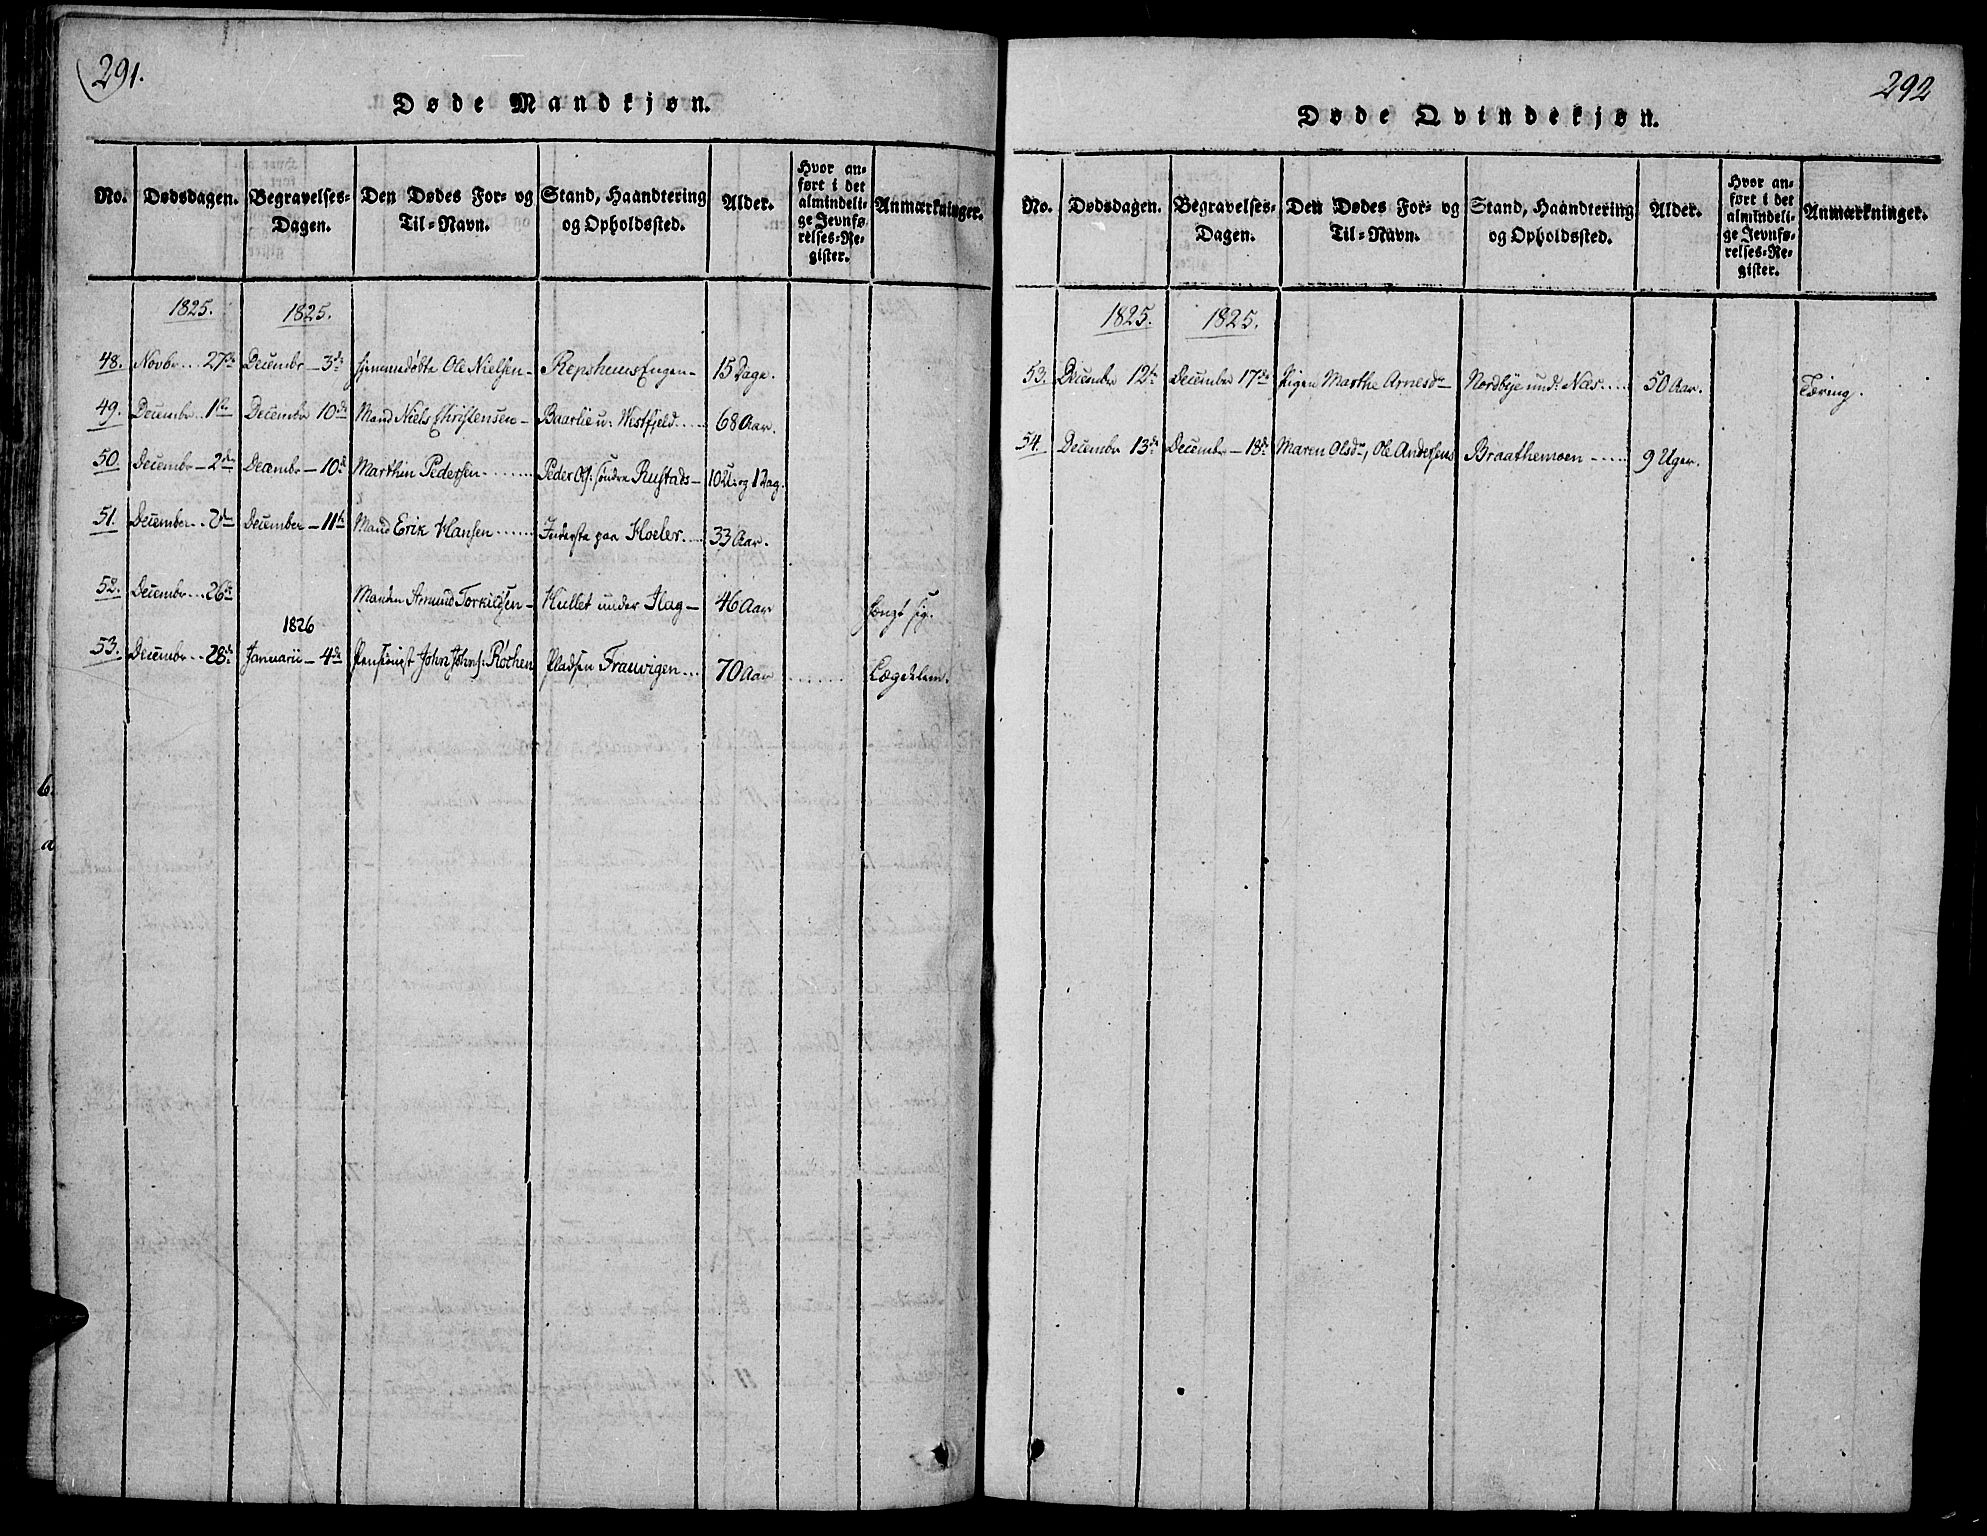 291.
Døde Mandkjøn.
No. Dødsdagen. Begravelses-Dagen. Den Dødes For- og Til-Navn. Stand, Haandtering og Opholdssted. Alder. Hvor anført i det almindelige Jevnførelses-Register. Anmærkninger.
1825. 1825.
48. Novbr... 27de Decembr - 3de hjemmedøbte Ole Nielsen - RepshemsEngen - 15 Dage.
49. Decembr. 1ste Decembr 10de Mand Niels Christensen - Baarlie u: Westfjeld..... 68 Aar.
50. Decembr - 2den Decembr - 10de Marthin Pedersen....... Peder Ols: søndre Rustads - 10 U. og 1 Dag.
51. December.. 2den December - 11te Mand Erik Hansen...... Inderste paa Hoeler.... 33 Aar.
52. Decembr... 26de Manden Amund Torkildsen - Hullet under Flag - 46 Aar hængt sig.
1826
53. Decembr.. 28de Januarii - 4de Pensionist John Johns: Rothen Pladsen Frauvigen... 70 Aar ...... Lægdslem.
292
Døde Qvindekjøn.
No. Dødsdagen. Begravelses-Dagen. Den Dødes For- og Til-Navn. Stand, Haandtering og Opholdssted. Alder. Hvor anført i det almindelige Jevnførelses-Register. Anmærkninger.
1825. 1825.
53. December 12te December 17de Pigen Marthe Arnesdr Nordbye und: Næs.... 50 Aar. Tæring.
54. Decembr 13de Decembr - 18de Maren Olsdr, Ole Andersens Braathemoen ..... 9 Uger.